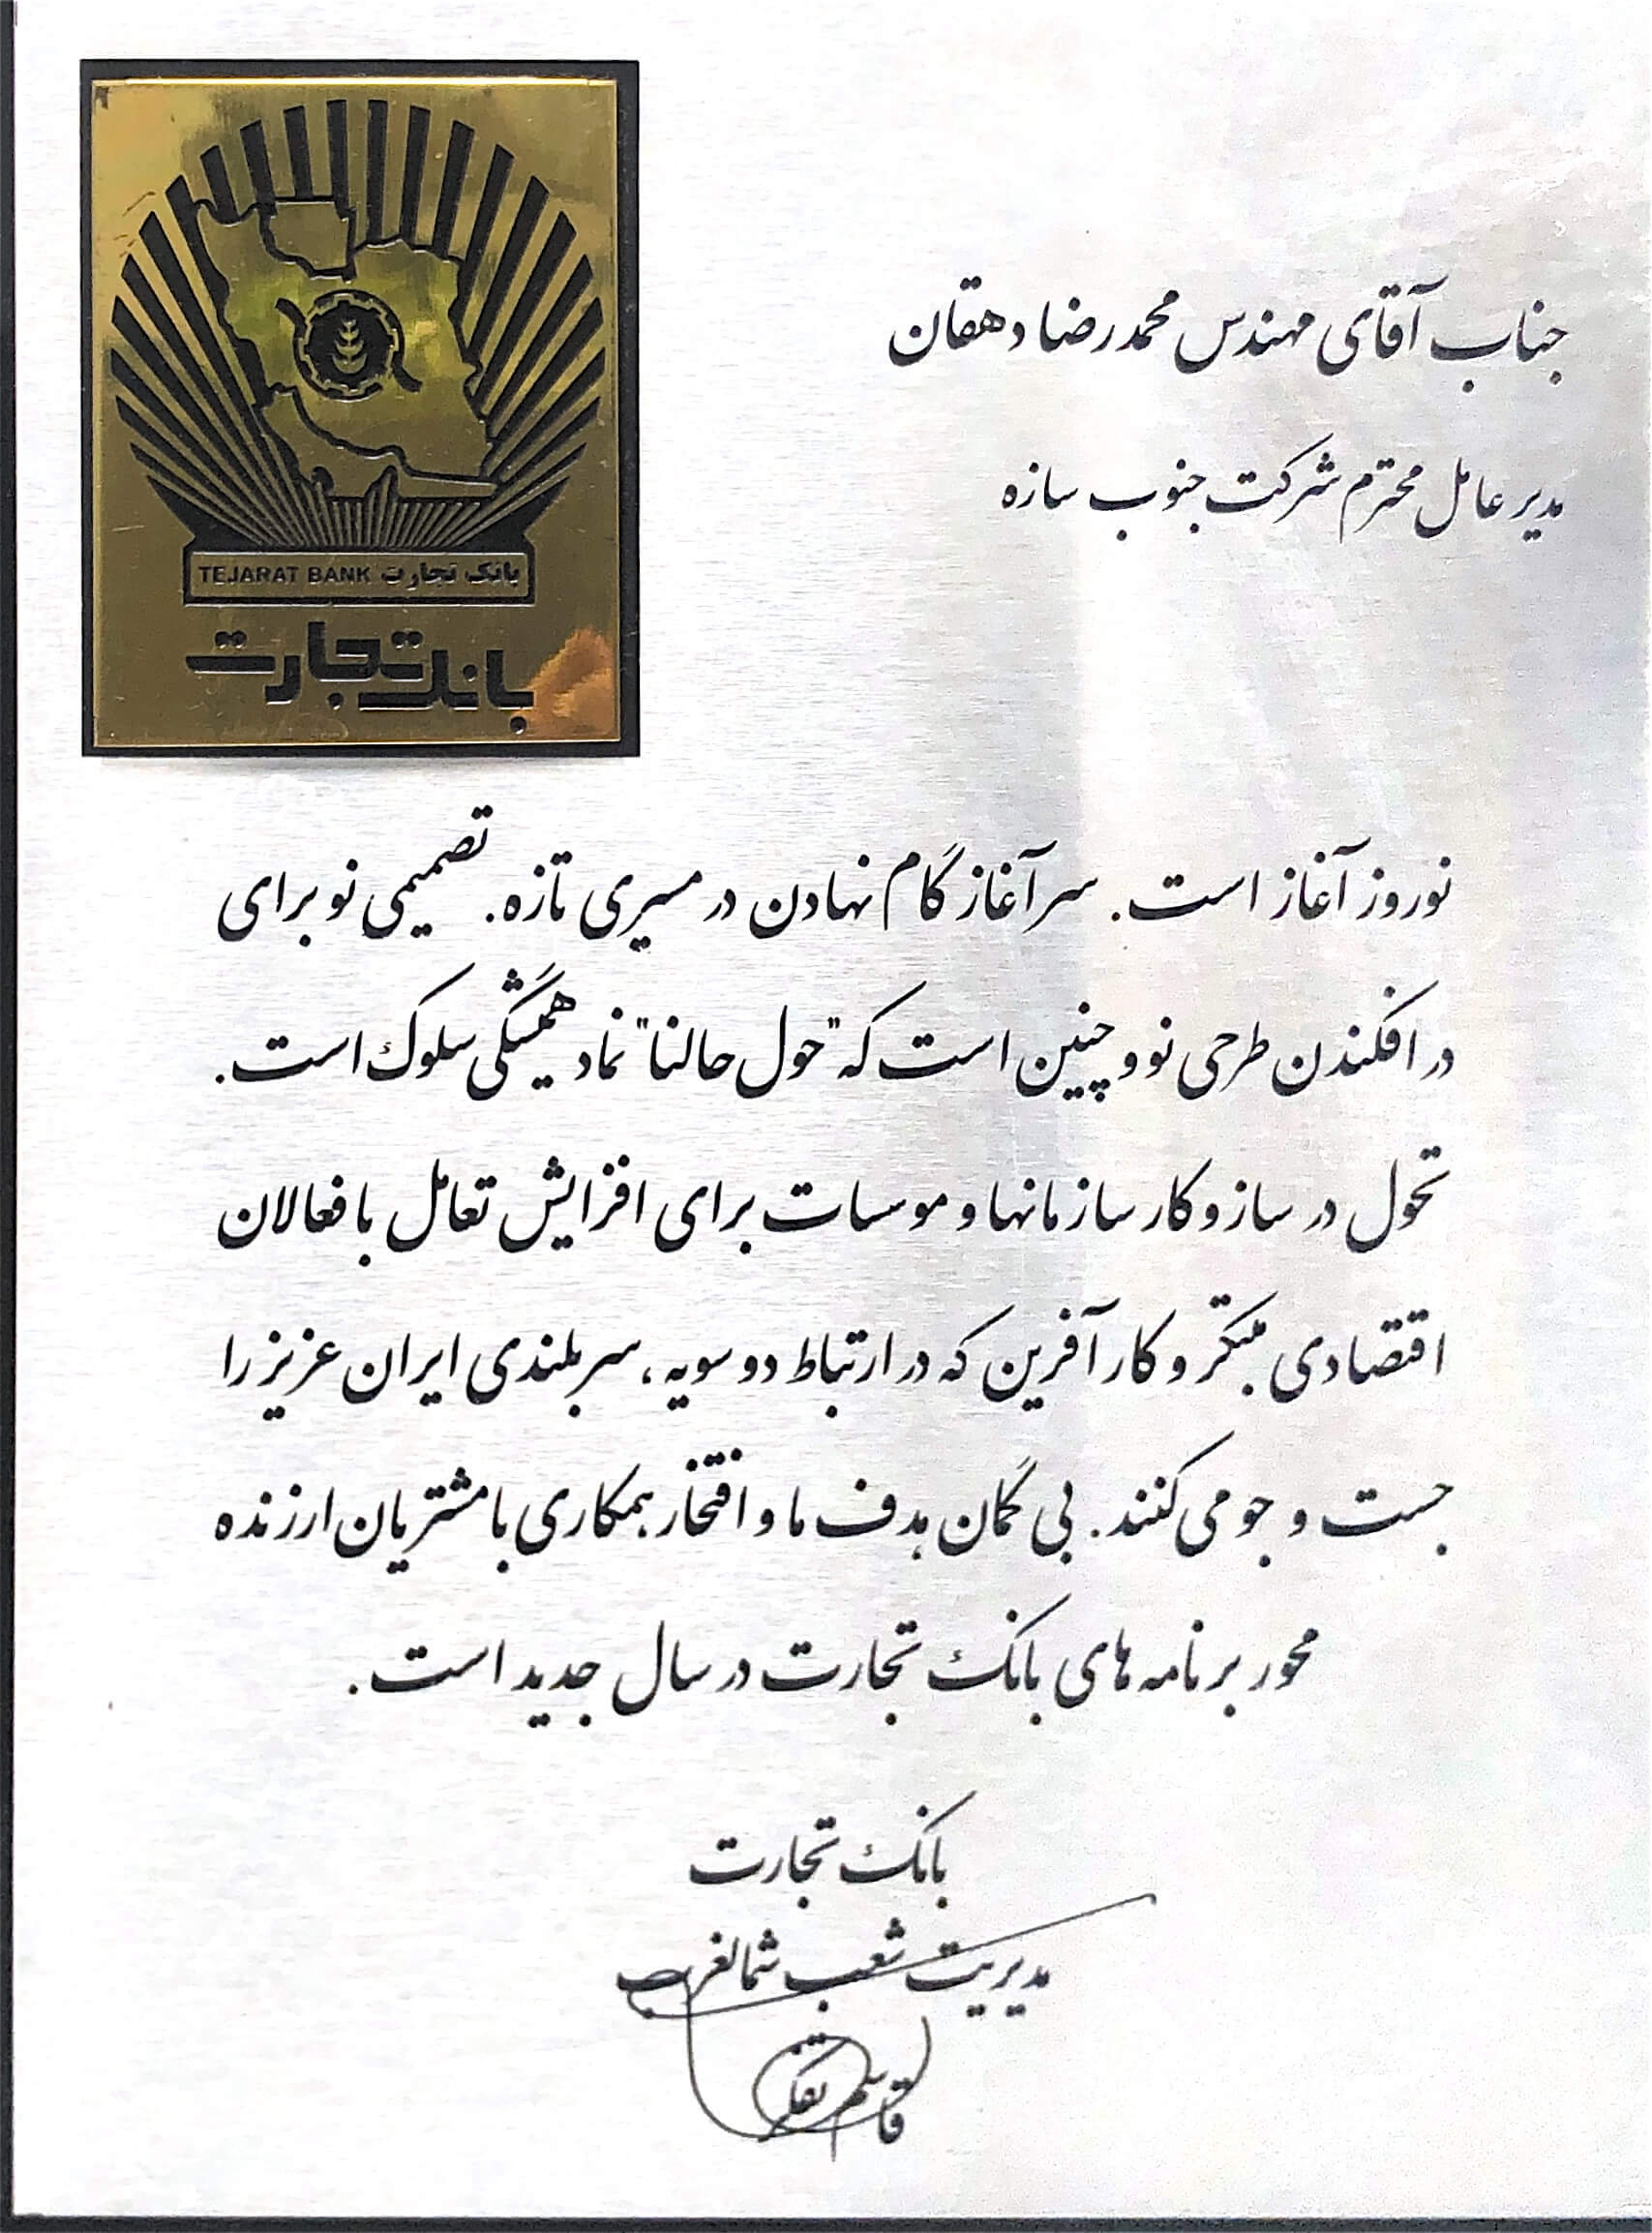 TEJARAT BANK بانک تجارت
بانک تجارت
جناب آقای مهندس محمدرضا دهقان
مدیر عامل محترم شرکت جنوب سازه
نوروز آغاز است. سرآغاز گام نهادن در مسیری تازه. تصمیمی نو برای
در افکندن طرحی نو و چنین است که "حول حالنا" نماد همیشگی سلوک است.
تحول در ساز و کار سازمانها و موسسات برای افزایش تعامل با فعالان
اقتصادی مبتکر و کارآفرین که در ارتباط دو سویه، سربلندی ایران عزیز را
جست و جو می کنند. بی گمان هدف ما و افتخار همکاری با مشتریان ارزنده
محور برنامه های بانک تجارت در سال جدید است.
بانک تجارت
مدیریت شعب شمالغرب
قاسم تفکر